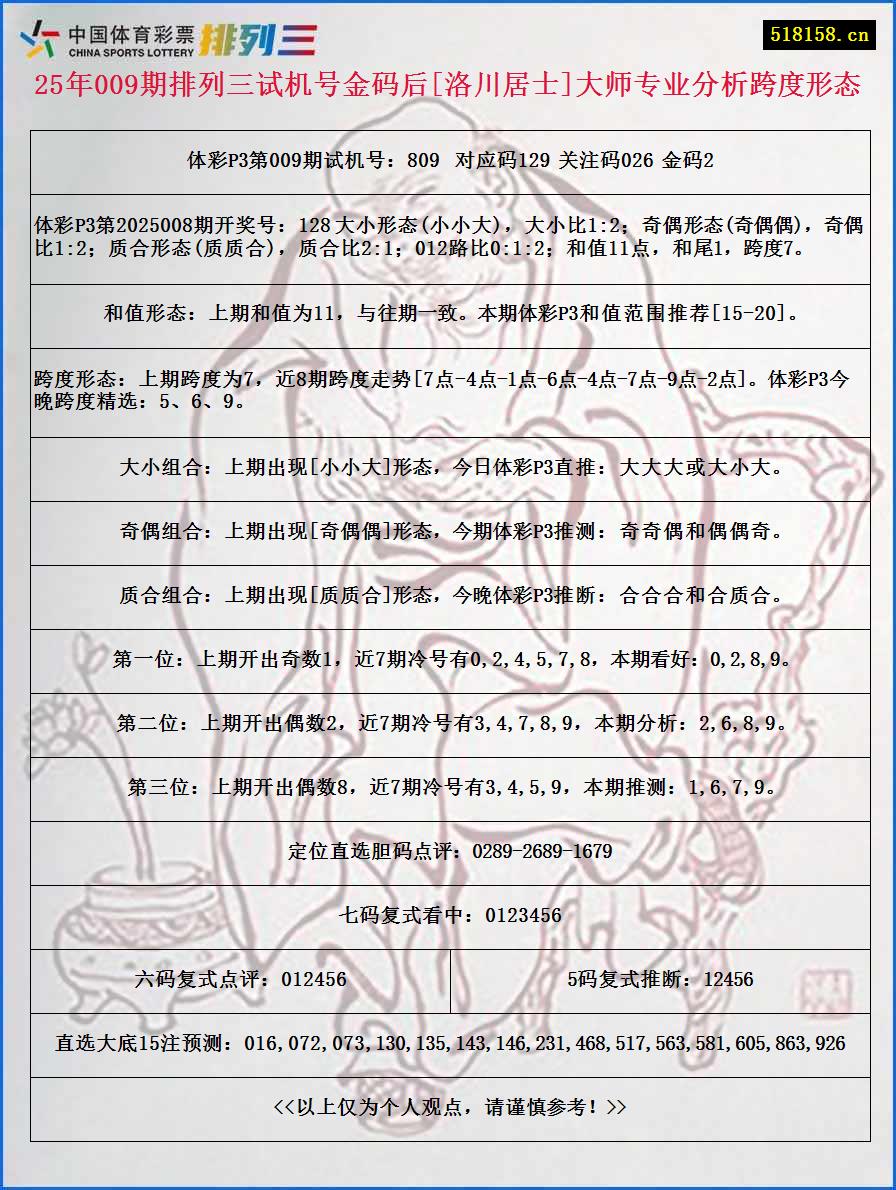 中国体育彩票
CHINA SPORTS LOTTERY
排列三
518158.cn
25年009期排列三试机号金码后[洛川居士]大师专业分析跨度形态
体彩P3第009期试机号：809 对应码129 关注码026 金码2
体彩P3第2025008期开奖号：128 大小形态(小小大)，大小比1:2；奇偶形态(奇偶偶)，奇偶
比1:2；质合形态(质质合)，质合比2:1；012路比0:1:2；和值11点，和尾1，跨度7。
和值形态：上期和值为11，与往期一致。本期体彩P3和值范围推荐[15-20]。
跨度形态：上期跨度为7，近8期跨度走势[7点-4点-1点-6点-4点-7点-9点-2点]。体彩P3今
晚跨度精选：5、6、9。
大小组合：上期出现[小小大]形态，今日体彩P3直推：大大大或大小大。
奇偶组合：上期出现[奇偶偶]形态，今期体彩P3推测：奇奇偶和偶偶奇。
质合组合：上期出现[质质合]形态，今晚体彩P3推断：合合合和合质合。
第一位：上期开出奇数1，近7期冷号有0,2,4,5,7,8，本期看好：0,2,8,9。
第二位：上期开出偶数2，近7期冷号有3,4,7,8,9，本期分析：2,6,8,9。
第三位：上期开出偶数8，近7期冷号有3,4,5,9，本期推测：1,6,7,9。
定位直选胆码点评：0289-2689-1679
七码复式看中：0123456
六码复式点评：012456
5码复式推断：12456
直选大底15注预测：016,072,073,130,135,143,146,231,468,517,563,581,605,863,926
<<以上仅为个人观点，请谨慎参考！>>